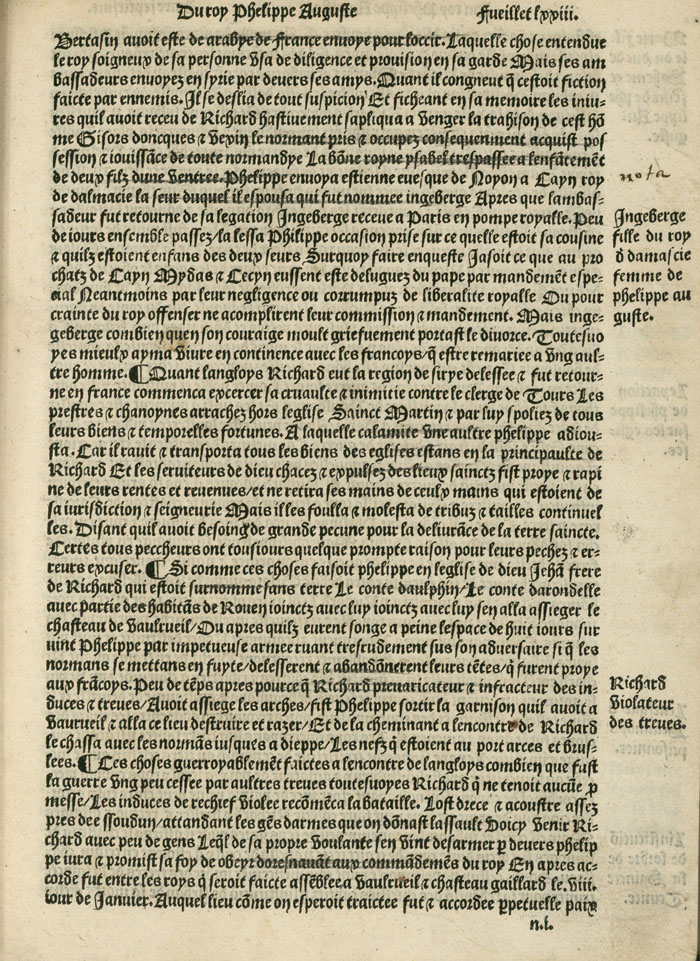 Du roy Phelippe Auguste
Fueillet lxxiii.
Vertasin avoit este de arabye de France envoye pour loccir. Laquelle chose entendue
le roy soigneux de sa personne vsa de diligence et provision en sa garde Mais ses am
bassadeurs envoyez en syrie par devers ses amys. Quant il congneut q̃ cestoit fiction
faicte par ennemis. Il se deslia de tout suspicion Et ficheant en sa memoire les iniu-
res quil avoit receu de Richard hastiuement sapliqua a venger la trahison de cest hõ
me Gisors doncques ⁊ vexin le normant pris ⁊ occupez consequenment acquist pos
session ⁊ iouissãce de toute normandye La bõne royne ysabel trespassee a lenfãtemẽt
de deux filz dune ventree. Phelippe envoya estienne euesque de Noyon a Cayn roy
de dalmacie la seur duquel il espousa qui fut nommee ingeberge Apres que lambas-
sadeur fut retourne de sa legation Ingeberge receue a Paris en pompe royalle. Peu
de iours ensemble passez/la lessa Philippe occasion prise sur ce quelle estoit sa cousine
⁊ quilz estoient enfans des deux seurs Surquoy faire enqueste Jasoit ce que au pro
chatz de Cayn Mydas ⁊ Cecyn eussent este deluguez du pape par mandemẽt espe-
cial Neantmoins par leur negligence ou corrumpuz de liberalite royalle Ou pour
crainte du roy offenser ne acomplirent leur commission ⁊ mandement. Mais inge-
geberge combien quen son couraige moult griefuement portast le divorce. Toutesuo
yes mieulx ayma viure en continence avec les francoys/q̃ estre remariee a vng aul-
tre homme. ¶Quant langloys Richard eut la region de sirye delessee ⁊ fut retour-
ne en france commenca excercer sa cruaulte ⁊ inimitie contre le clerge de Tours Les
prestres ⁊ chanoynes arrachez hors leglise Sainct Martin ⁊ par luy spoliez de tous
leurs biens ⁊ temporelles fortunes. A laquelle calamite vne aultre phelippe adiou-
sta. Car il ravit ⁊ transporta tous les biens des eglises estans en la principaulte de
Richard Et les serviteurs de dieu chacez ⁊ expulsez des lieux sainctz fist proye ⁊ rapi
ne de leurs rentes et revenues/et ne retira ses mains de ceulx mains qui estoient de
sa iurisdiction ⁊ seigneurie Mais il les foulla ⁊ molesta de tribuz ⁊ tailles continuel
les. Disant quil avoit besoing de grande pecune pour la delivrãce de la terre saincte.
Certes tous peccheurs ont tousiours quelque prompte raison pour leurs pechez ⁊ er-
reurs excuser. ¶Si comme ces choses faisoit phelippe en leglise de dieu Jehã frere
de Richard qui estoit surnomme sans terre Le conte daulphin/Le conte darondelle
avec partie des habitãs de Rouen ioinctz avec luy ioinctz avec luy sen alla assieger le
chasteau de vaulrueil/Ou apres quilz eurent songe a peine lespace de huit iours sur
vint Phelippe par impetueuse armee ruant tresrudement sus son adversaire si q̃ les
normans se mettans en fuyte/delesserent ⁊ abandõnerent leurs tẽtes/q̃ furent proye
aux frãcoys. Peu de tẽps apres pource q̃ Richard prevaricateur ⁊ infracteur des in-
duces ⁊ treves/Avoit assiege les arches/fist Phelippe sortir la garnison quil avoit a
vaurueil ⁊ alla ce lieu destruire et razer/Et de la cheminant a lencontre de Richard
le chassa avec les normãs iusques a dieppe/Les nefz q̃ estoient au port arces et brus-
lees. ¶Ces choses guerroyablemẽt faictes a lencontre de langloys combien que fust
la guerre vng peu cessee par aultres treves toutesuoyes Richard q̃ ne tenoit aucũe p̱ro
messe/Les induces de rechief violee recõmẽca la bataille. Lost diece ⁊ acoustre assez
pres de essoudun/attandant les gẽs darmes que on dõnast lassault Voicy venir Ri-
chard avec peu de gens Leq̃l de sa propre voulante sen vint desarmer p̱ devers phelip
pe iura ⁊ promist sa foy de obeyr doresnauãt aux commãdemẽs du roy En apres ac-
corde fut entre les roys q̃ seroit faicte assẽblee a vaulrueil ⁊ chasteau gaillard le. viii.
iour de Janvier. Auquel lieu cõme on esperoit traictee fut ⁊ accordee p̱petuelle paix
n.i.
nota
Ingeberge
fille du roy
d damascie
femme de
phelippe au
guste.
Richard
violateur
des treves.